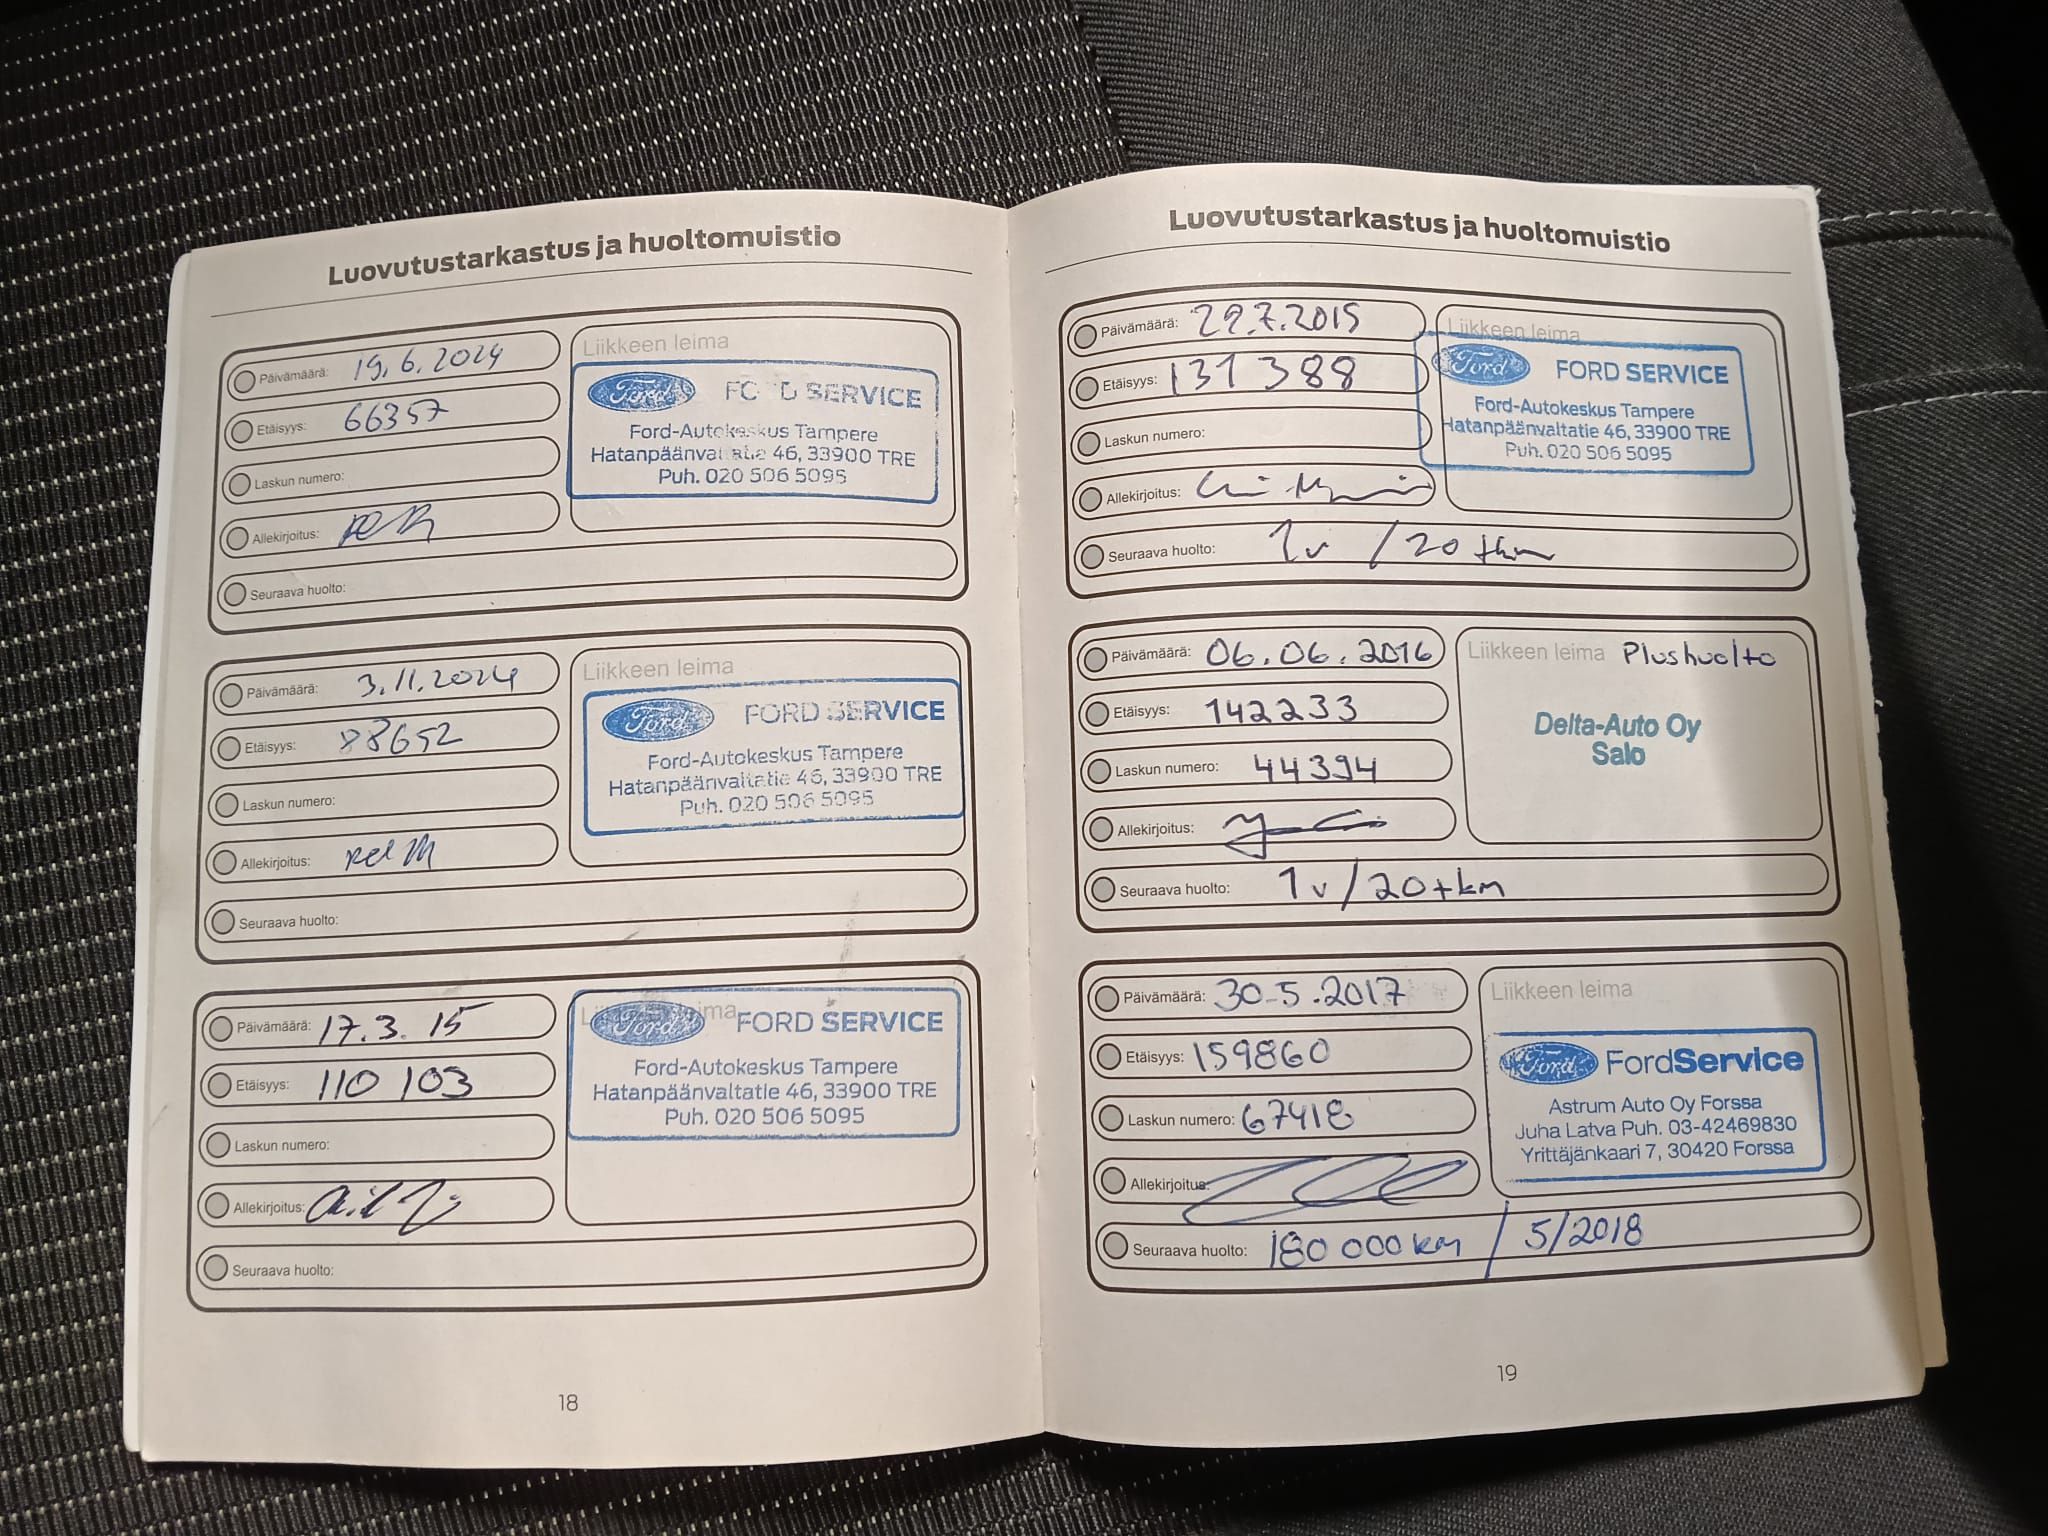 Luovutustarkastus ja huoltomuistio
Päivämäärä: 19.6.2024
Etäisyys: 66357
Laskun numero:
Allekirjoitus:
Seuraava huolto:
Liikkeen leima
Ford FO D SERVICE
Ford-Autokeskus Tampere
Hatanpäänvaltatie 46, 33900 TRE
Puh. 020 506 5095
Päivämäärä: 3.11.2024
Etäisyys: 88652
Laskun numero:
Allekirjoitus:
Seuraava huolto:
Liikkeen leima
Ford FORD SERVICE
Ford-Autokeskus Tampere
Hatanpäänvaltatie 46, 33900 TRE
Puh. 020 506 5095
Päivämäärä: 17.3.15
Etäisyys: 110 103
Laskun numero:
Allekirjoitus:
Seuraava huolto:
Liikkeen leima
Ford FORD SERVICE
Ford-Autokeskus Tampere
Hatanpäänvaltatie 46, 33900 TRE
Puh. 020 506 5095
18
Luovutustarkastus ja huoltomuistio
Päivämäärä: 29.7.2015
Etäisyys: 131 388
Laskun numero:
Allekirjoitus:
Seuraava huolto: 1v / 20 tkm
Liikkeen leima
Ford FORD SERVICE
Ford-Autokeskus Tampere
Hatanpäänvaltatie 46, 33900 TRE
Puh. 020 506 5095
Päivämäärä: 06.06.2016
Etäisyys: 142233
Laskun numero: 44394
Allekirjoitus:
Seuraava huolto: 1v/20tkm
Liikkeen leima Plushuolto
Delta-Auto Oy
Salo
Päivämäärä: 30.5.2017
Etäisyys: 159860
Laskun numero: 67418
Allekirjoitus:
Seuraava huolto: 180 000 km / 5/2018
Liikkeen leima
Ford FordService
Astrum Auto Oy Forssa
Juha Latva Puh. 03-42469830
Yrittäjänkaari 7, 30420 Forssa
19